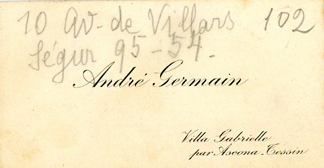 10 Av. de Villars 102
Ségur 95-54.
André Germain
Villa Gabrielle
par Ascona-Tessin